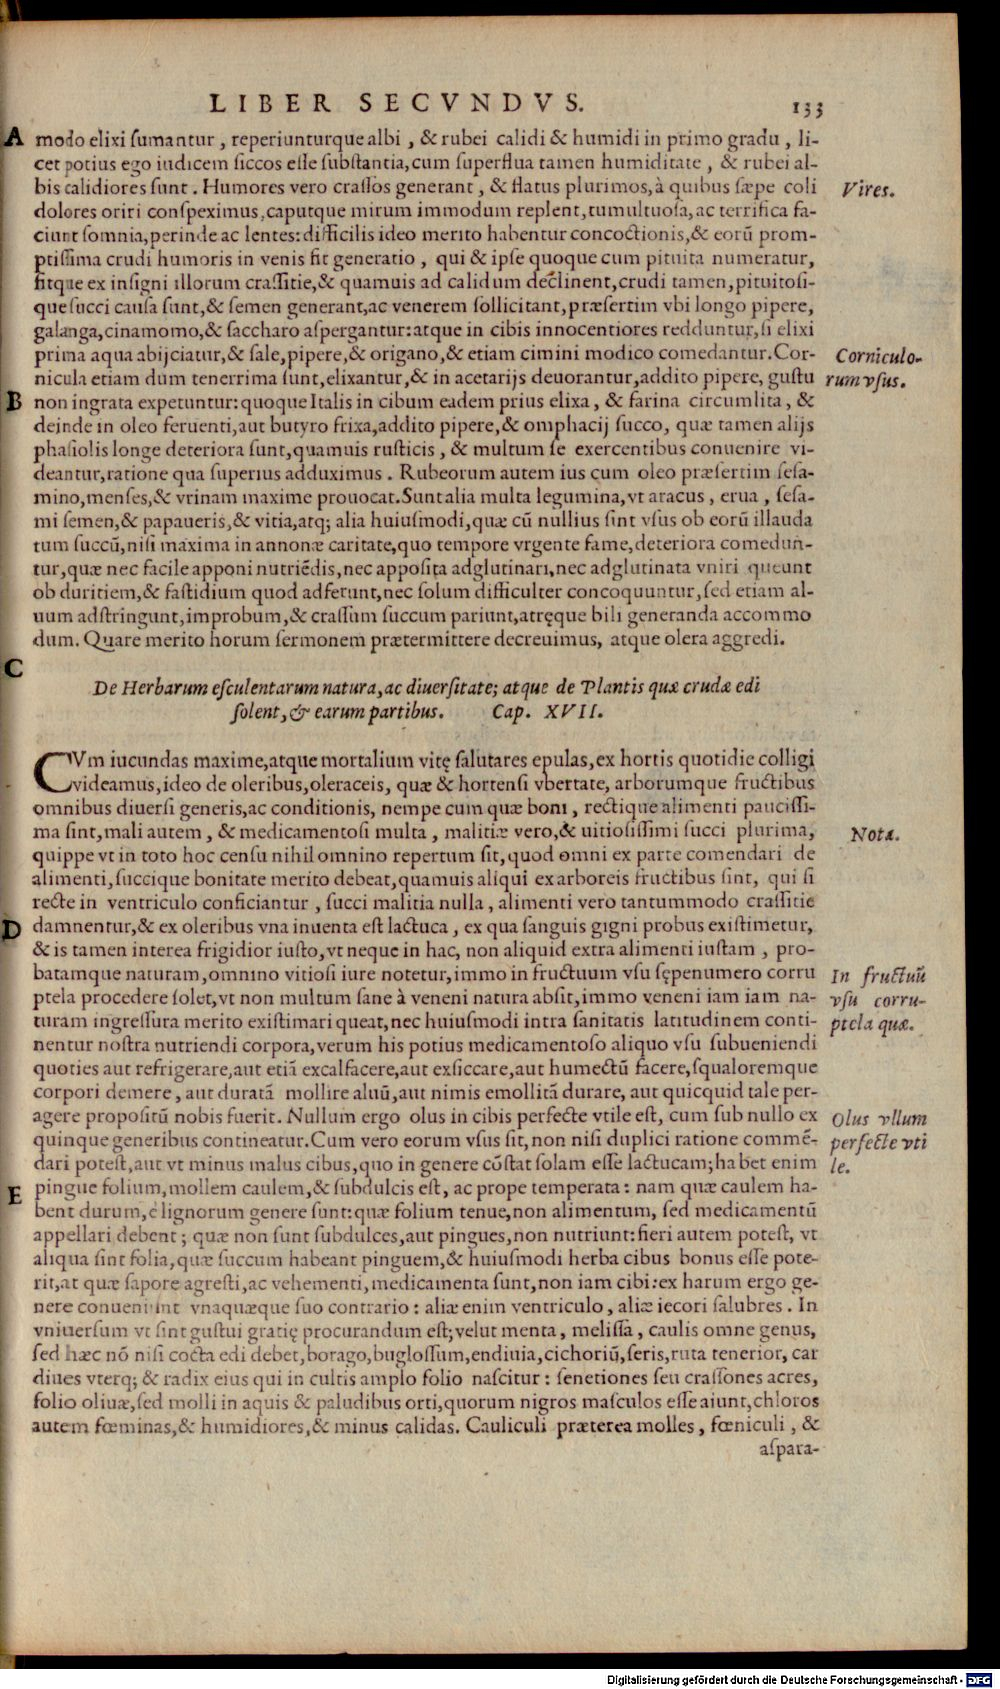 LIBER SECVNDVS. 133
A modo elixi sumantur, reperiunturque albi, & rubei calidi & humidi in primo gradu, li-
cet potius ego iudicem siccos esse substantia, cum superflua tamen humiditate, & rubei al-
bis calidiores sunt. Humores vero crassos generant, & flatus plurimos, à quibus sæpe coli Vires.
dolores oriri conspeximus, caputque mirum immodum replent, tumultuosa, ac terrifica fa-
ciunt somnia, perinde ac lentes: difficilis ideo merito habentur concoctionis, & eorū prom-
ptissima crudi humoris in venis fit generatio, qui & ipse quoque cum pituita numeratur,
fitque ex insigni illorum crassitie, & quamuis ad calidum declinent, crudi tamen, pituitosi-
que succi causa sunt, & semen generant, ac venerem sollicitant, præsertim vbi longo pipere,
galanga, cinamomo, & saccharo aspergantur: atque in cibis innocentiores redduntur, si elixi
prima aqua abijciatur, & sale, pipere, & origano, & etiam cimini modico comedantur. Cor- Corniculo-
nicula etiam dum tenerrima sunt, elixantur, & in acetarijs deuorantur, addito pipere, gustu rum vsus.
B non ingrata expetuntur: quoque Italis in cibum eadem prius elixa, & farina circumlita, &
deinde in oleo feruenti, aut butyro frixa, addito pipere, & omphacij succo, quæ tamen alijs
phasiolis longe deteriora sunt, quamuis rusticis, & multum se exercentibus conuenire vi-
deantur, ratione qua superius adduximus. Rubeorum autem ius cum oleo præsertim sesa-
mino, menses, & vrinam maxime prouocat. Sunt alia multa legumina, vt aracus, erua, sesa-
mi semen, & papaueris, & vitia, atq; alia huiusmodi, quæ cū nullius sint vsus ob eorū illauda
tum succū, nisi maxima in annonæ caritate, quo tempore vrgente fame, deteriora comedun-
tur, quæ nec facile apponi nutriēdis, nec apposita adglutinari, nec adglutinata vniri queunt
ob duritiem, & fastidium quod adferunt, nec solum difficulter concoquuntur, sed etiam al-
uum adstringunt, improbum, & crassum succum pariunt, atręque bili generanda accommo
dum. Quare merito horum sermonem prætermittere decreuimus, atque olera aggredi.
C
De Herbarum esculentarum natura, ac diuersitate; atque de Plantis quæ crudæ edi
solent, & earum partibus. Cap. XVII.
CVm iucundas maxime, atque mortalium vitę salutares epulas, ex hortis quotidie colligi
videamus, ideo de oleribus, oleraceis, quæ & hortensi vbertate, arborumque fructibus
omnibus diuersi generis, ac conditionis, nempe cum quæ boni, rectique alimenti paucissi-
ma sint, mali autem, & medicamentosi multa, malitiæ vero, & uitiosissimi succi plurima, Nota.
quippe vt in toto hoc censu nihil omnino repertum sit, quod omni ex parte comendari de
alimenti, succique bonitate merito debeat, quamuis aliqui ex arboreis fructibus sint, qui si
recte in ventriculo conficiantur, succi malitia nulla, alimenti vero tantummodo crassitie
D damnentur, & ex oleribus vna inuenta est lactuca, ex qua sanguis gigni probus existimetur,
& is tamen interea frigidior iusto, vt neque in hac, non aliquid extra alimenti iustam, pro-
batamque naturam, omnino vitiosi iure notetur, immo in fructuum vsu sępenumero corru In fructuū
ptela procedere solet, vt non multum sane à veneni natura absit, immo veneni iam iam na- vsu corru-
turam ingressura merito existimari queat, nec huiusmodi intra sanitatis latitudinem conti- ptela quæ.
nentur nostra nutriendi corpora, verum his potius medicamentoso aliquo vsu subueniendi
quoties aut refrigerare, aut etiā excalfacere, aut exsiccare, aut humectū facere, squaloremque
corpori demere, aut duratā mollire aluū, aut nimis emollitā durare, aut quicquid tale per-
agere propositū nobis fuerit. Nullum ergo olus in cibis perfecte vtile est, cum sub nullo ex Olus vllum
quinque generibus contineatur. Cum vero eorum vsus sit, non nisi duplici ratione commē- perfecte vti
dari potest, aut vt minus malus cibus, quo in genere cōstat solam esse lactucam; habet enim le.
E pingue folium, mollem caulem, & subdulcis est, ac prope temperata: nam quæ caulem ha-
bent durum, è lignorum genere sunt: quæ folium tenue, non alimentum, sed medicamentū
appellari debent; quæ non sunt subdulces, aut pingues, non nutriunt: fieri autem potest, vt
aliqua sint folia, quæ succum habeant pinguem, & huiusmodi herba cibus bonus esse pote-
rit, at quæ sapore agresti, ac vehementi, medicamenta sunt, non iam cibi: ex harum ergo ge-
nere conueniunt vnaquæque suo contrario: aliæ enim ventriculo, aliæ iecori salubres. In
vniuersum vt sint gustui gratię procurandum est; velut menta, melissa, caulis omne genus,
sed hæc nō nisi cocta edi debet, borago, buglossum, endiuia, cichoriū, seris, ruta tenerior, car
diues vterq; & radix eius qui in cultis amplo folio nascitur: senetiones seu crassones acres,
folio oliuæ, sed molli in aquis & paludibus orti, quorum nigros masculos esse aiunt, chloros
autem fœminas, & humidiores, & minus calidas. Cauliculi præterea molles, fœniculi, &
aspara-
Digitalisierung gefördert durch die Deutsche Forschungsgemeinschaft - DFG